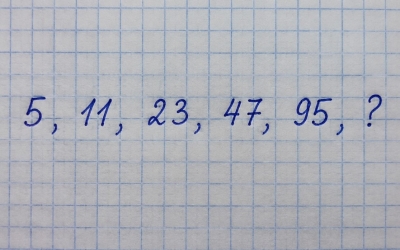 5, 11, 23, 47, 95, ?